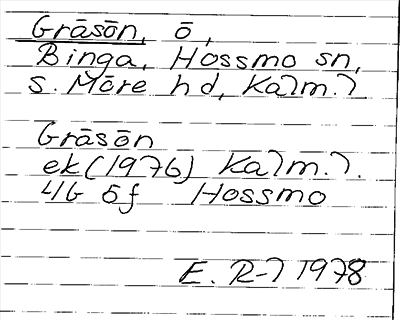 Gråsön, ö,
Binga, Hossmo sn,
S. Möre hd, Kalm. l.
Gråsön
ek (1976) Kalm. l.
4G öf Hossmo
E. R-l 1978